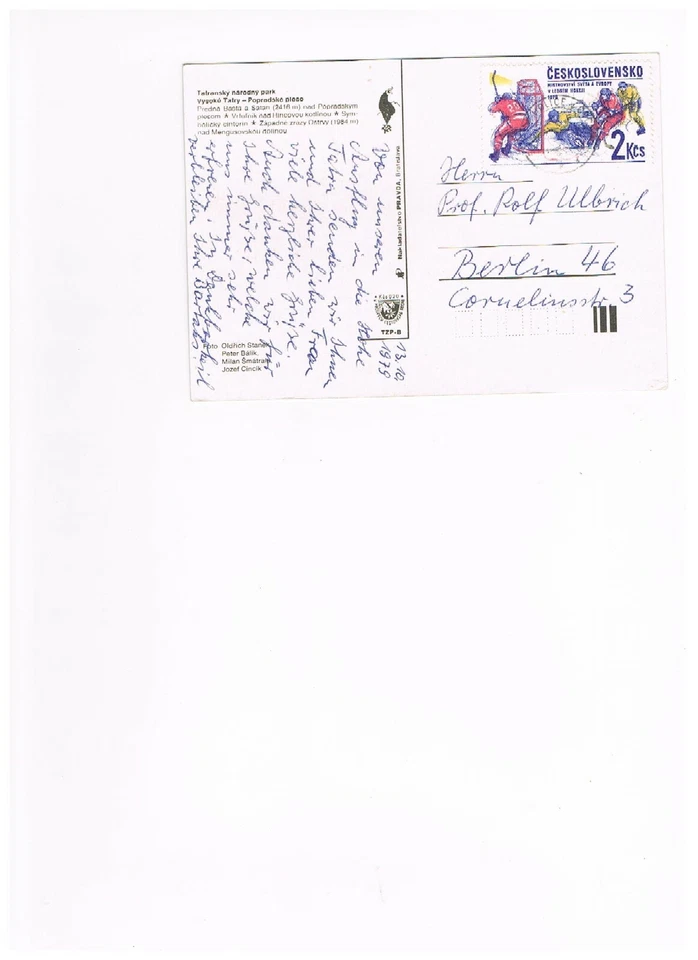 Tatranský národný park
Vysoké Tatry – Popradské pleso
Predná Bašta a Satan (2416 m) nad Popradským
plesom ★ Volia nad Hincovou kotlinou ★ Sym-
bolický cintorín ★ Západné zrázy Ostrvy (1984 m)
nad Mengusovskou dolinou
Von unserem
Ausflug in die Hohe
Tatra senden wir Ihnen
und Ihrer lieben Frau
viele herzliche Grüsse.
Auch danken wir für
Ihre Grüsse, welche
uns immer sehr
erfreuen. In Dankbarkeit
verbleiben Ihre
13.10.
1979
Foto Oldřich Staněk
Peter Bálik,
Milan Šmátrala
Jozef Cincík
Nakladateľstvo PRAVDA, Bratislava
TZP-B
ČESKOSLOVENSKO
MISTROVSTVÍ SVĚTA A EVROPY
V LEDNÍM HOKEJI
1978
2 Kčs
Herrn
Prof. Rolf Ullrich
Berlin 46
Corneliusstr. 3